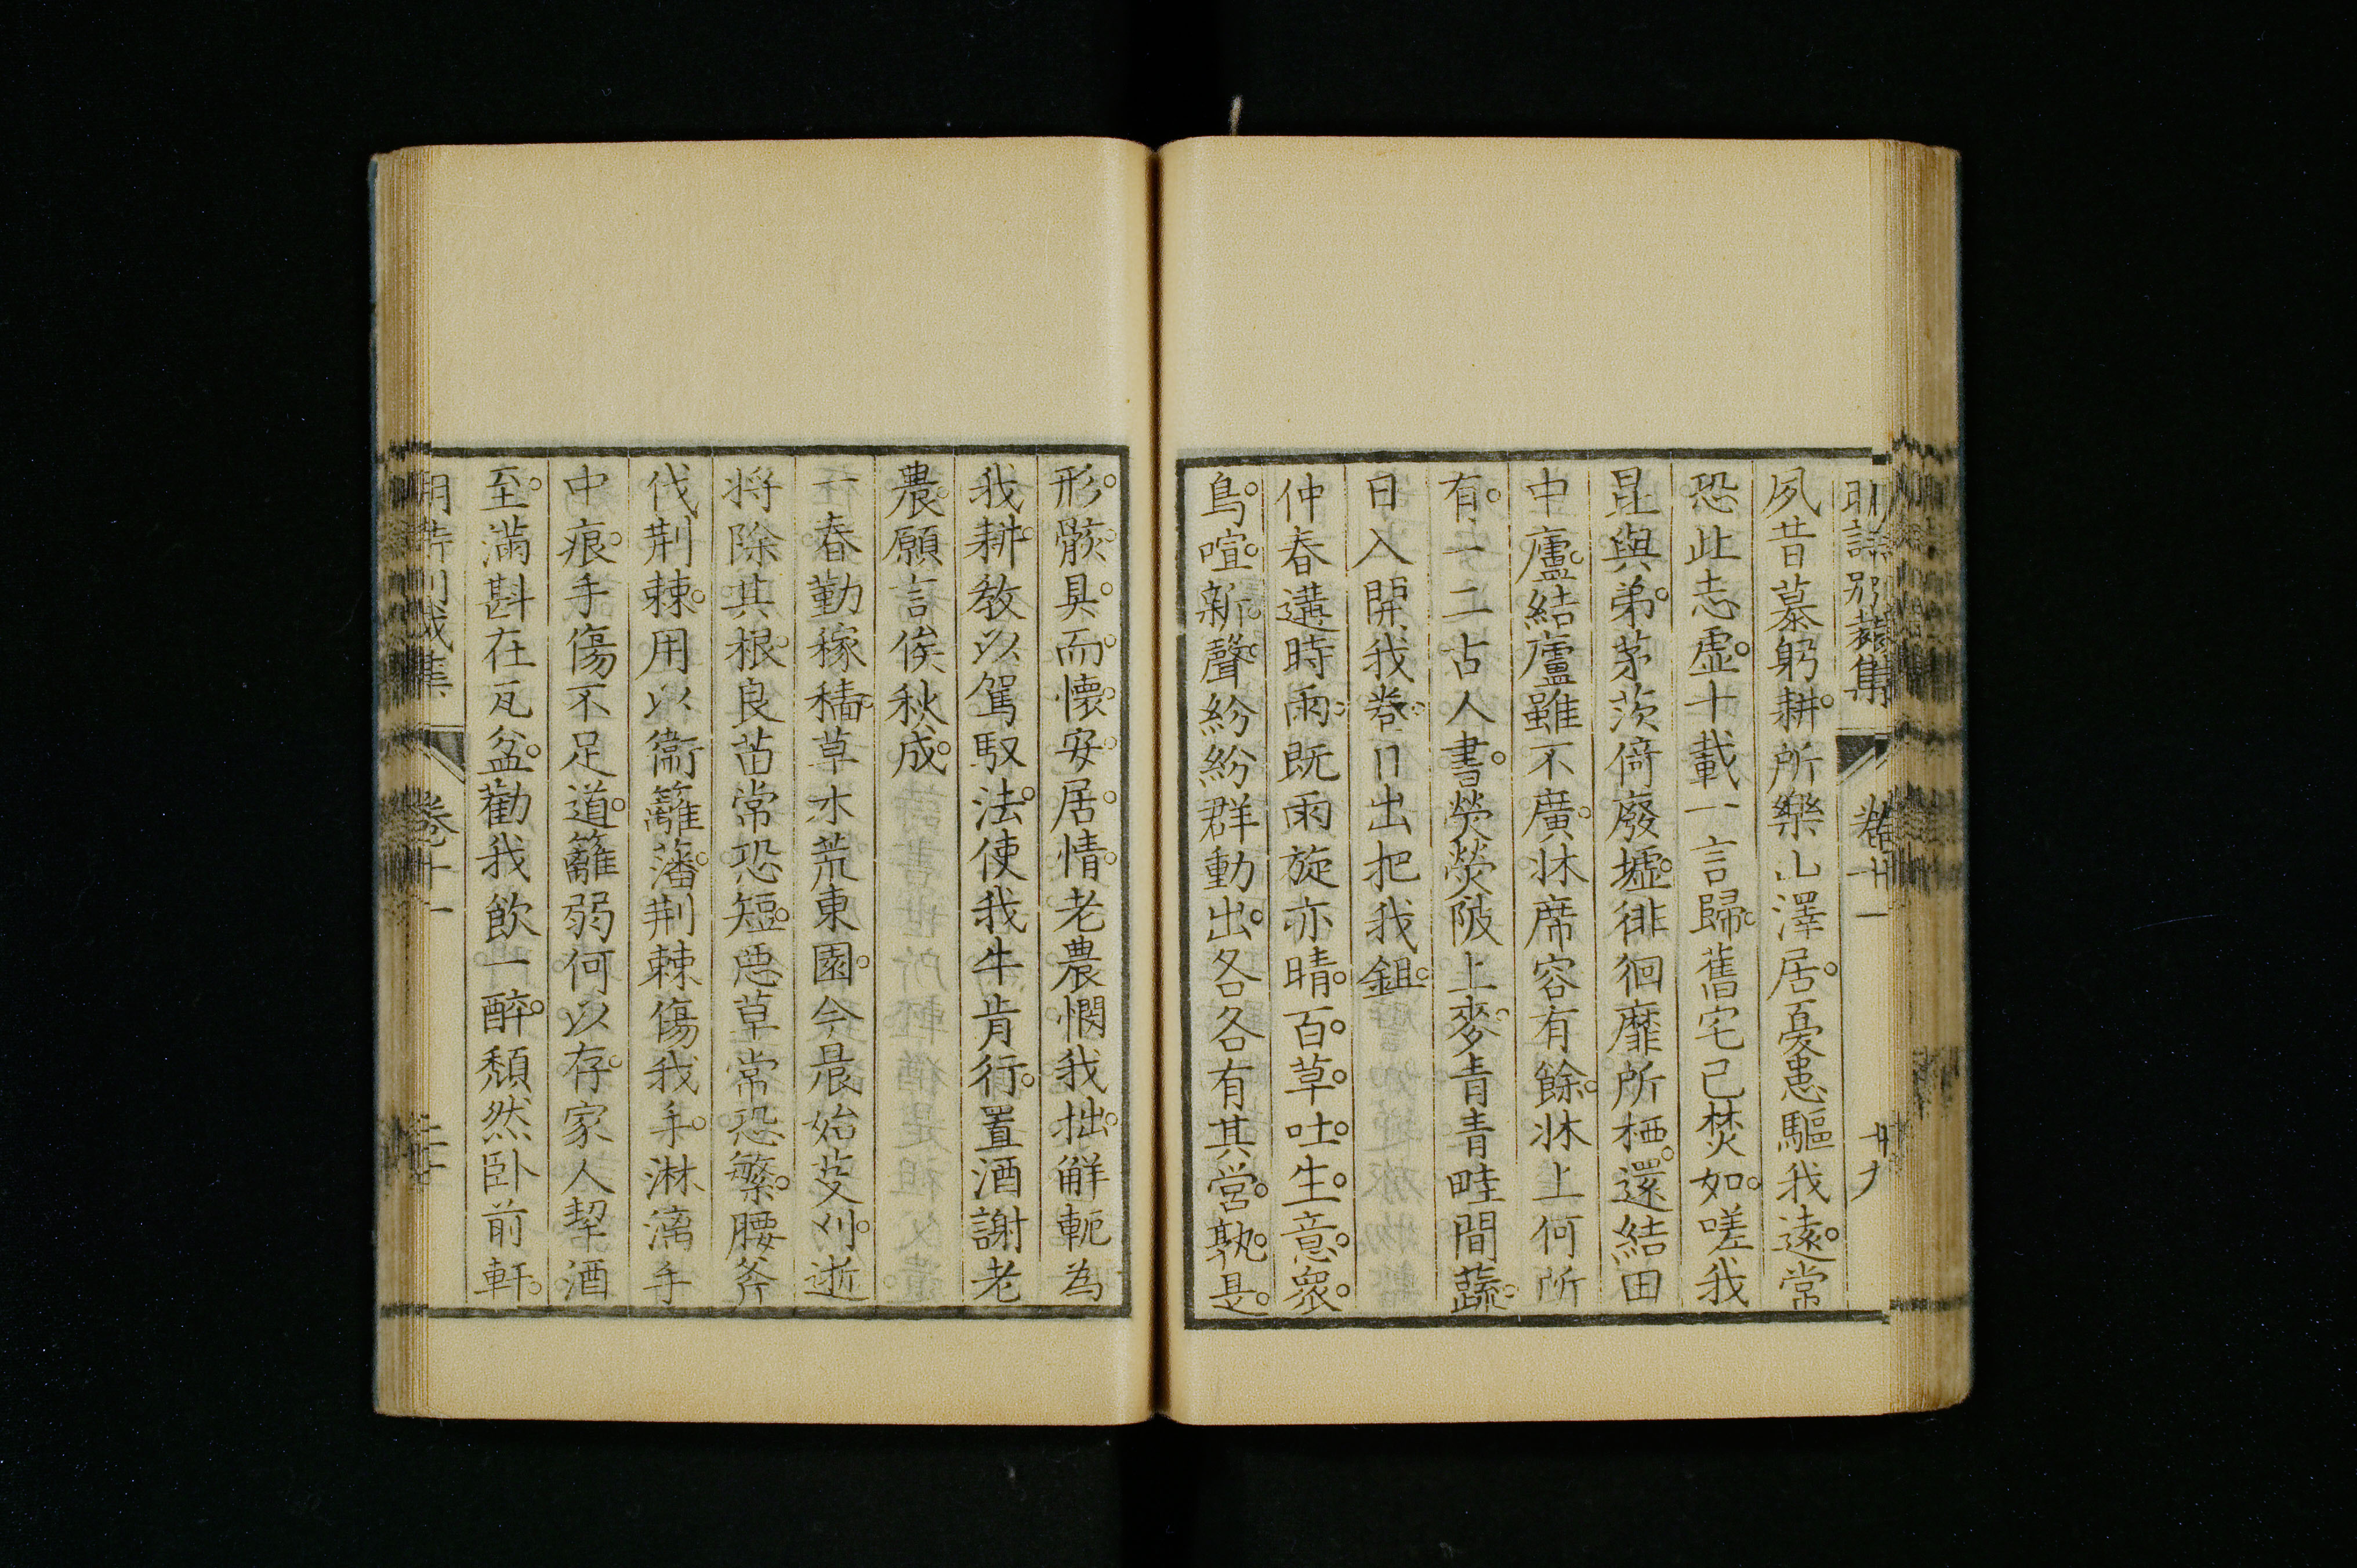 明詩別裁集 卷十一 廿九
夙昔慕躬耕所樂山澤居憂患驅我遠常
恐此志虛十載一言歸舊宅已焚如嗟我
昆與弟茅茨倚廢墟徘徊靡所栖還結田
中廬結廬雖不廣牀席容有餘牀上何所
有一二古人書熒熒陂上麥青青畦間蔬
日入開我卷日出把我鉏
仲春遘時雨既雨旋亦晴百草吐生意衆
鳥喧新聲紛紛群動出各各有其營孰是
形骸具而懷安居情老農憫我拙解軛為
我耕教以駕馭法使我牛肯行置酒謝老
農願言俟秋成
一春勤稼穡草木荒東園今晨始芟刈逝
将除其根良苗常恐短惡草常恐繁腰斧
伐荆棘用以衞籬藩荆棘傷我手淋漓手
中痕手傷不足道籬弱何以存家人挈酒
至滿斟在瓦盆勸我飲一醉頹然卧前軒
明詩別裁集 卷十一